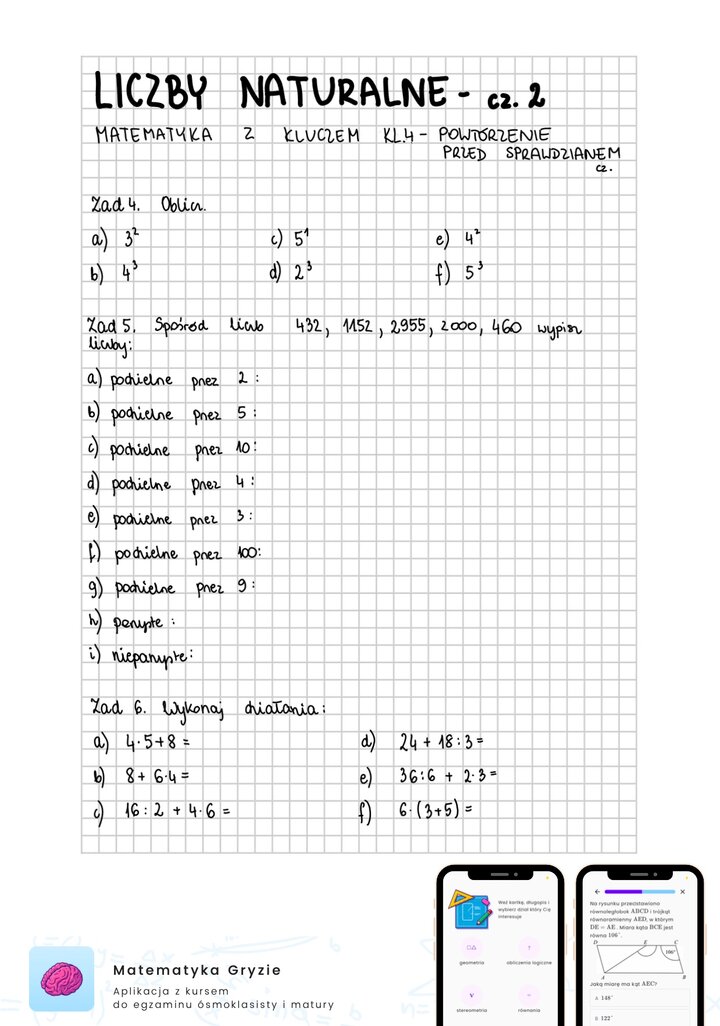 LICZBY NATURALNE - cz. 2
MATEMATYKA Z KLUCZEM KL.4 - POWTÓRZENIE
PRZED SPRAWDZIANEM
cz.
Zad 4. Oblicz.
a) 3² c) 5¹ e) 4²
b) 4³ d) 2³ f) 5³
Zad 5. Spośród liczb 432, 1152, 2955, 2000, 460 wypisz
liczby:
a) podzielne przez 2 :
b) podzielne przez 5 :
c) podzielne przez 10 :
d) podzielne przez 4 :
e) podzielne przez 3 :
f) podzielne przez 100:
g) podzielne przez 9 :
h) parzyste :
i) nieparzyste :
Zad 6. Wykonaj działania :
a) 4·5+8 = d) 24 + 18 : 3 =
b) 8 + 6·4 = e) 36:6 + 2·3 =
c) 16 : 2 + 4·6 = f) 6·(3+5) =
Matematyka Gryzie
Aplikacja z kursem
do egzaminu ósmoklasisty i matury
Weź kartkę, długopis i
wybierz dział który Cię
interesuje
geometria obliczenia logiczne
stereometria równania
Na rysunku przedstawiono
równoległobok ABCD i trójkąt
równoramienny AED, w którym
DE = AE. Miara kąta BCE jest
równa 106°.
D E C
106°
A B
Jaką miarę ma kąt AEC?
A 148°
B 122°